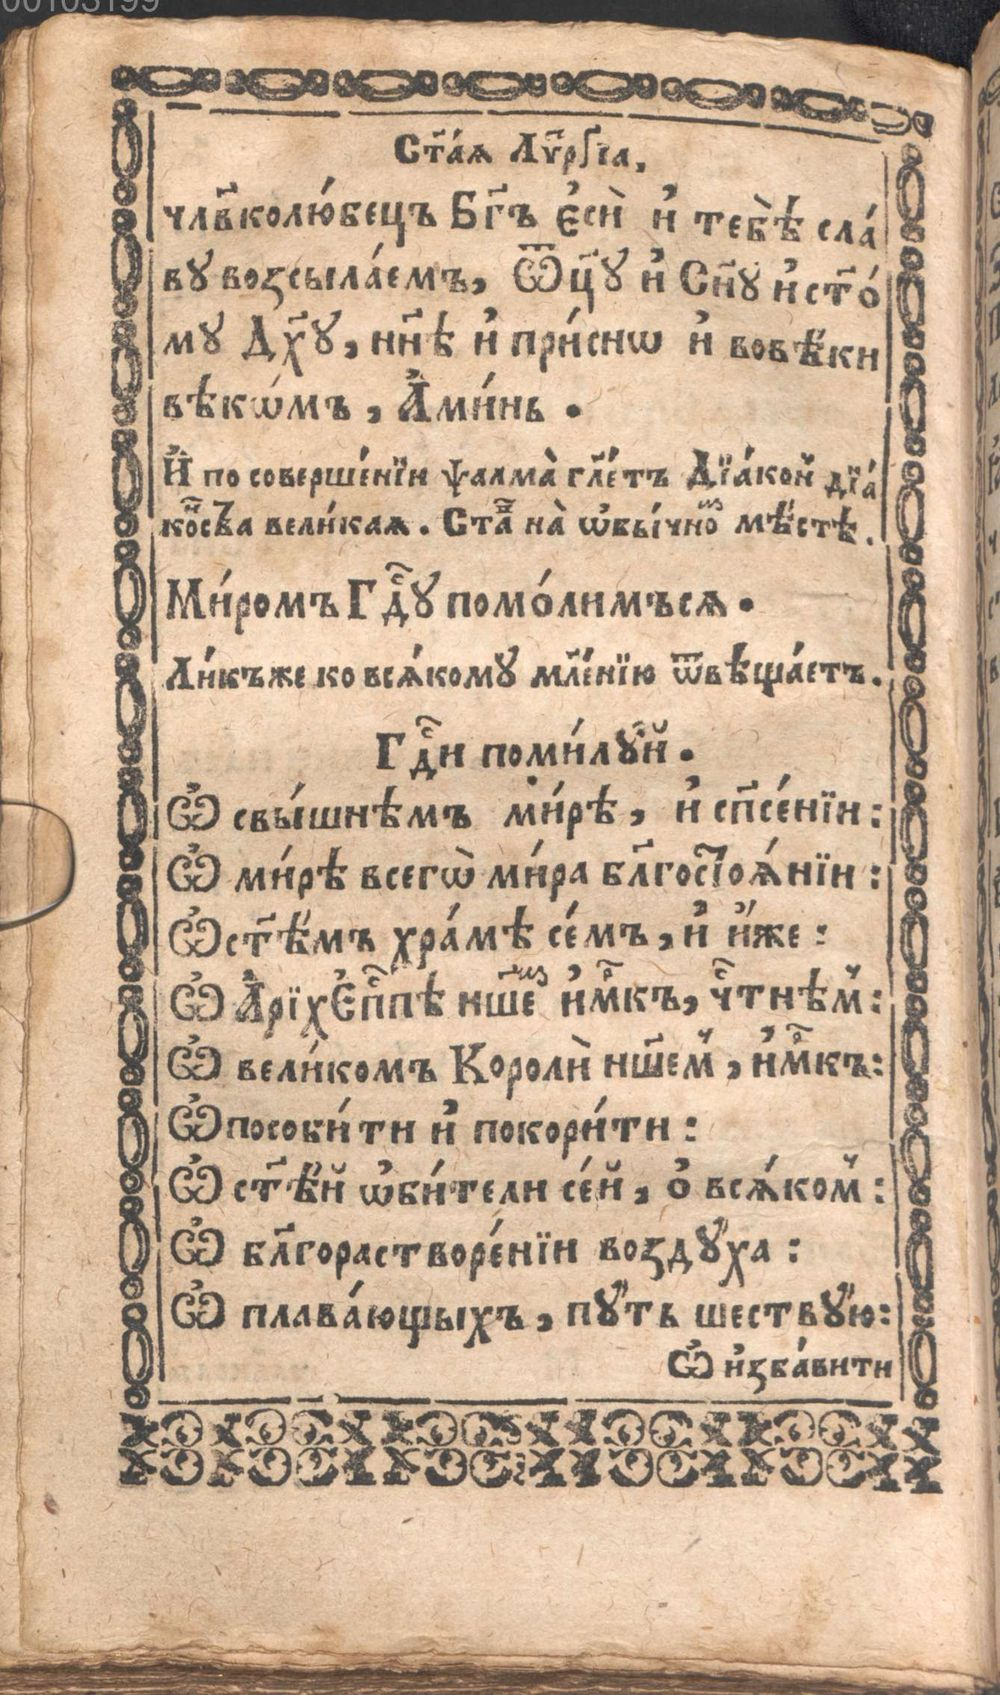 00103199
Ст҃а́ѧ Лѵ҃рⷢ҇їа,
чл҃вколю́бецъ Бг҃ъ є҆сѝ и҆ тебѣ̀ сла́
ву возсыла́емъ, Ѿц҃у и҆ Сн҃у и҆ ст҃о́
му Дх҃у, нн҃ѣ и҆ при́снѡ и҆ вовѣ́ки
вѣкѡ́мъ, А҆ми́нь .
И҆ по соверше́нїи ѱалма̀ гл҃етъ Дїа́кон дїа́
ко́нсⷭ҇тва вели́каѧ. Ста́в на̀ ѡ҆бы́чноⷨ мѣ́стѣ.
Ми́ромъ Гдⷭ҇у помо́лимъсѧ .
Ли́къже ко всѧ́кому мл҃е́нїю ѿвѣща́етъ.
Гдⷭ҇и поми́луй .
Ѽ свы́шнѣмъ ми́рѣ, и҆ сп҃се́нїи :
Ѽ ми́рѣ всегѡ̀ ми́ра бл҃госⷮоѧ́нїи :
Ѽ ст҃ѣ́мъ хра́мѣ се́мъ, и҆ и҆́же :
Ѽ А҆рїхЕ҆пⷭ҇пѣ нш҃еⷨ и҆́мⷬ҇къ, чⷭ҇тнѣм :
Ѽ вели́комъ Королѝ нш҃ем, и҆́мⷬ҇къ :
Ѽ пособи́ти и҆ покори́ти :
Ѽ ст҃ѣ́й ѡ҆би́тели се́й, о҆ всѧ́ком :
Ѽ бл҃горастворе́нїи возду́ха :
Ѽ плава́ющыхъ, пу́ть шеству́ю :
Ѽ и҆зба́вити